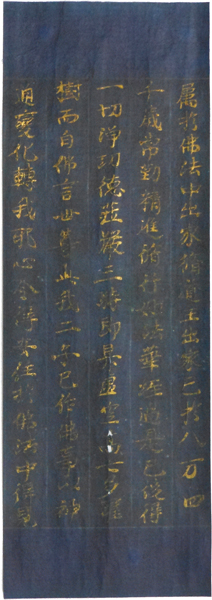 屬於佛法中出家脩道王出家已於八万四
千歲常勤精進脩行妙法華經過是已後得
一切淨功德莊嚴三昧即昇虛空高七多羅
樹而白佛言世尊此我二子已作佛事以神
通變化轉我邪心令得安住於佛法中得見